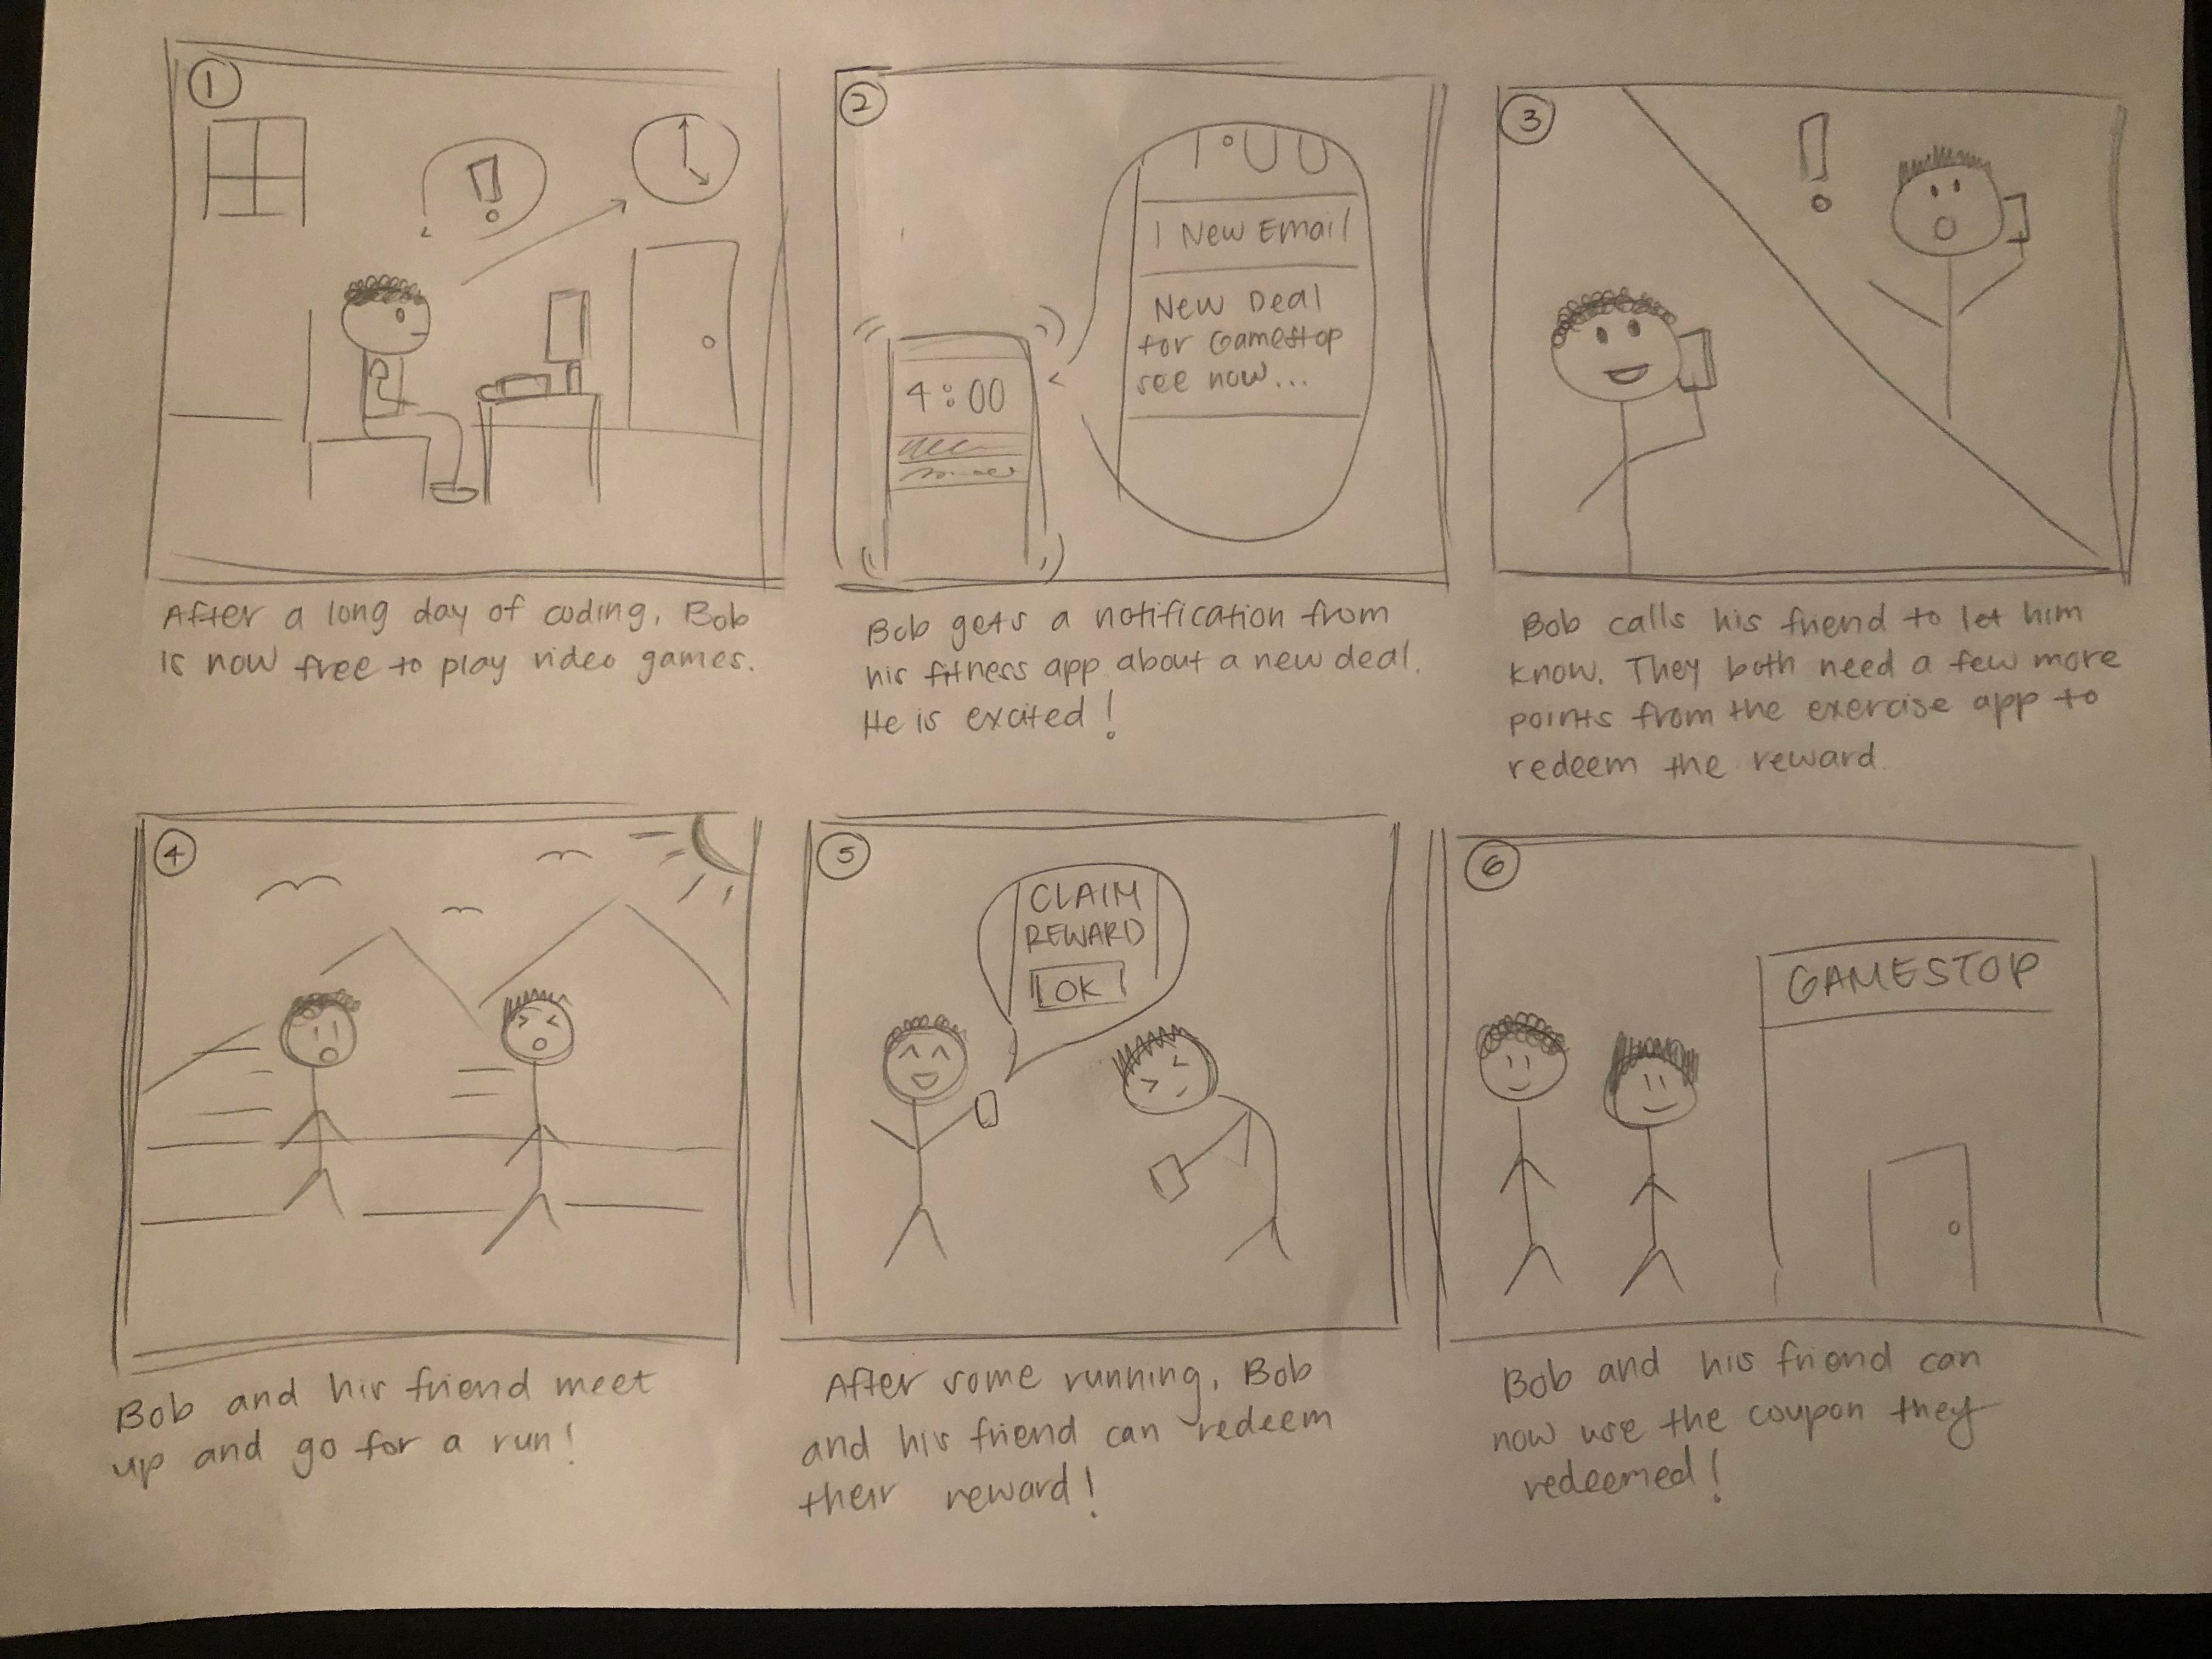 1
!
After a long day of coding, Bob
is now free to play video games.
2
4:00
1 New Email
New Deal
for Gamestop
see now...
Bob gets a notification from
his fitness app about a new deal.
He is excited!
3
!
Bob calls his friend to let him
know. They both need a few more
points from the exercise app to
redeem the reward.
4
Bob and his friend meet
up and go for a run!
5
CLAIM
REWARD
OK
After some running, Bob
and his friend can redeem
their reward!
6
GAMESTOP
Bob and his friend can
now use the coupon they
redeemed!